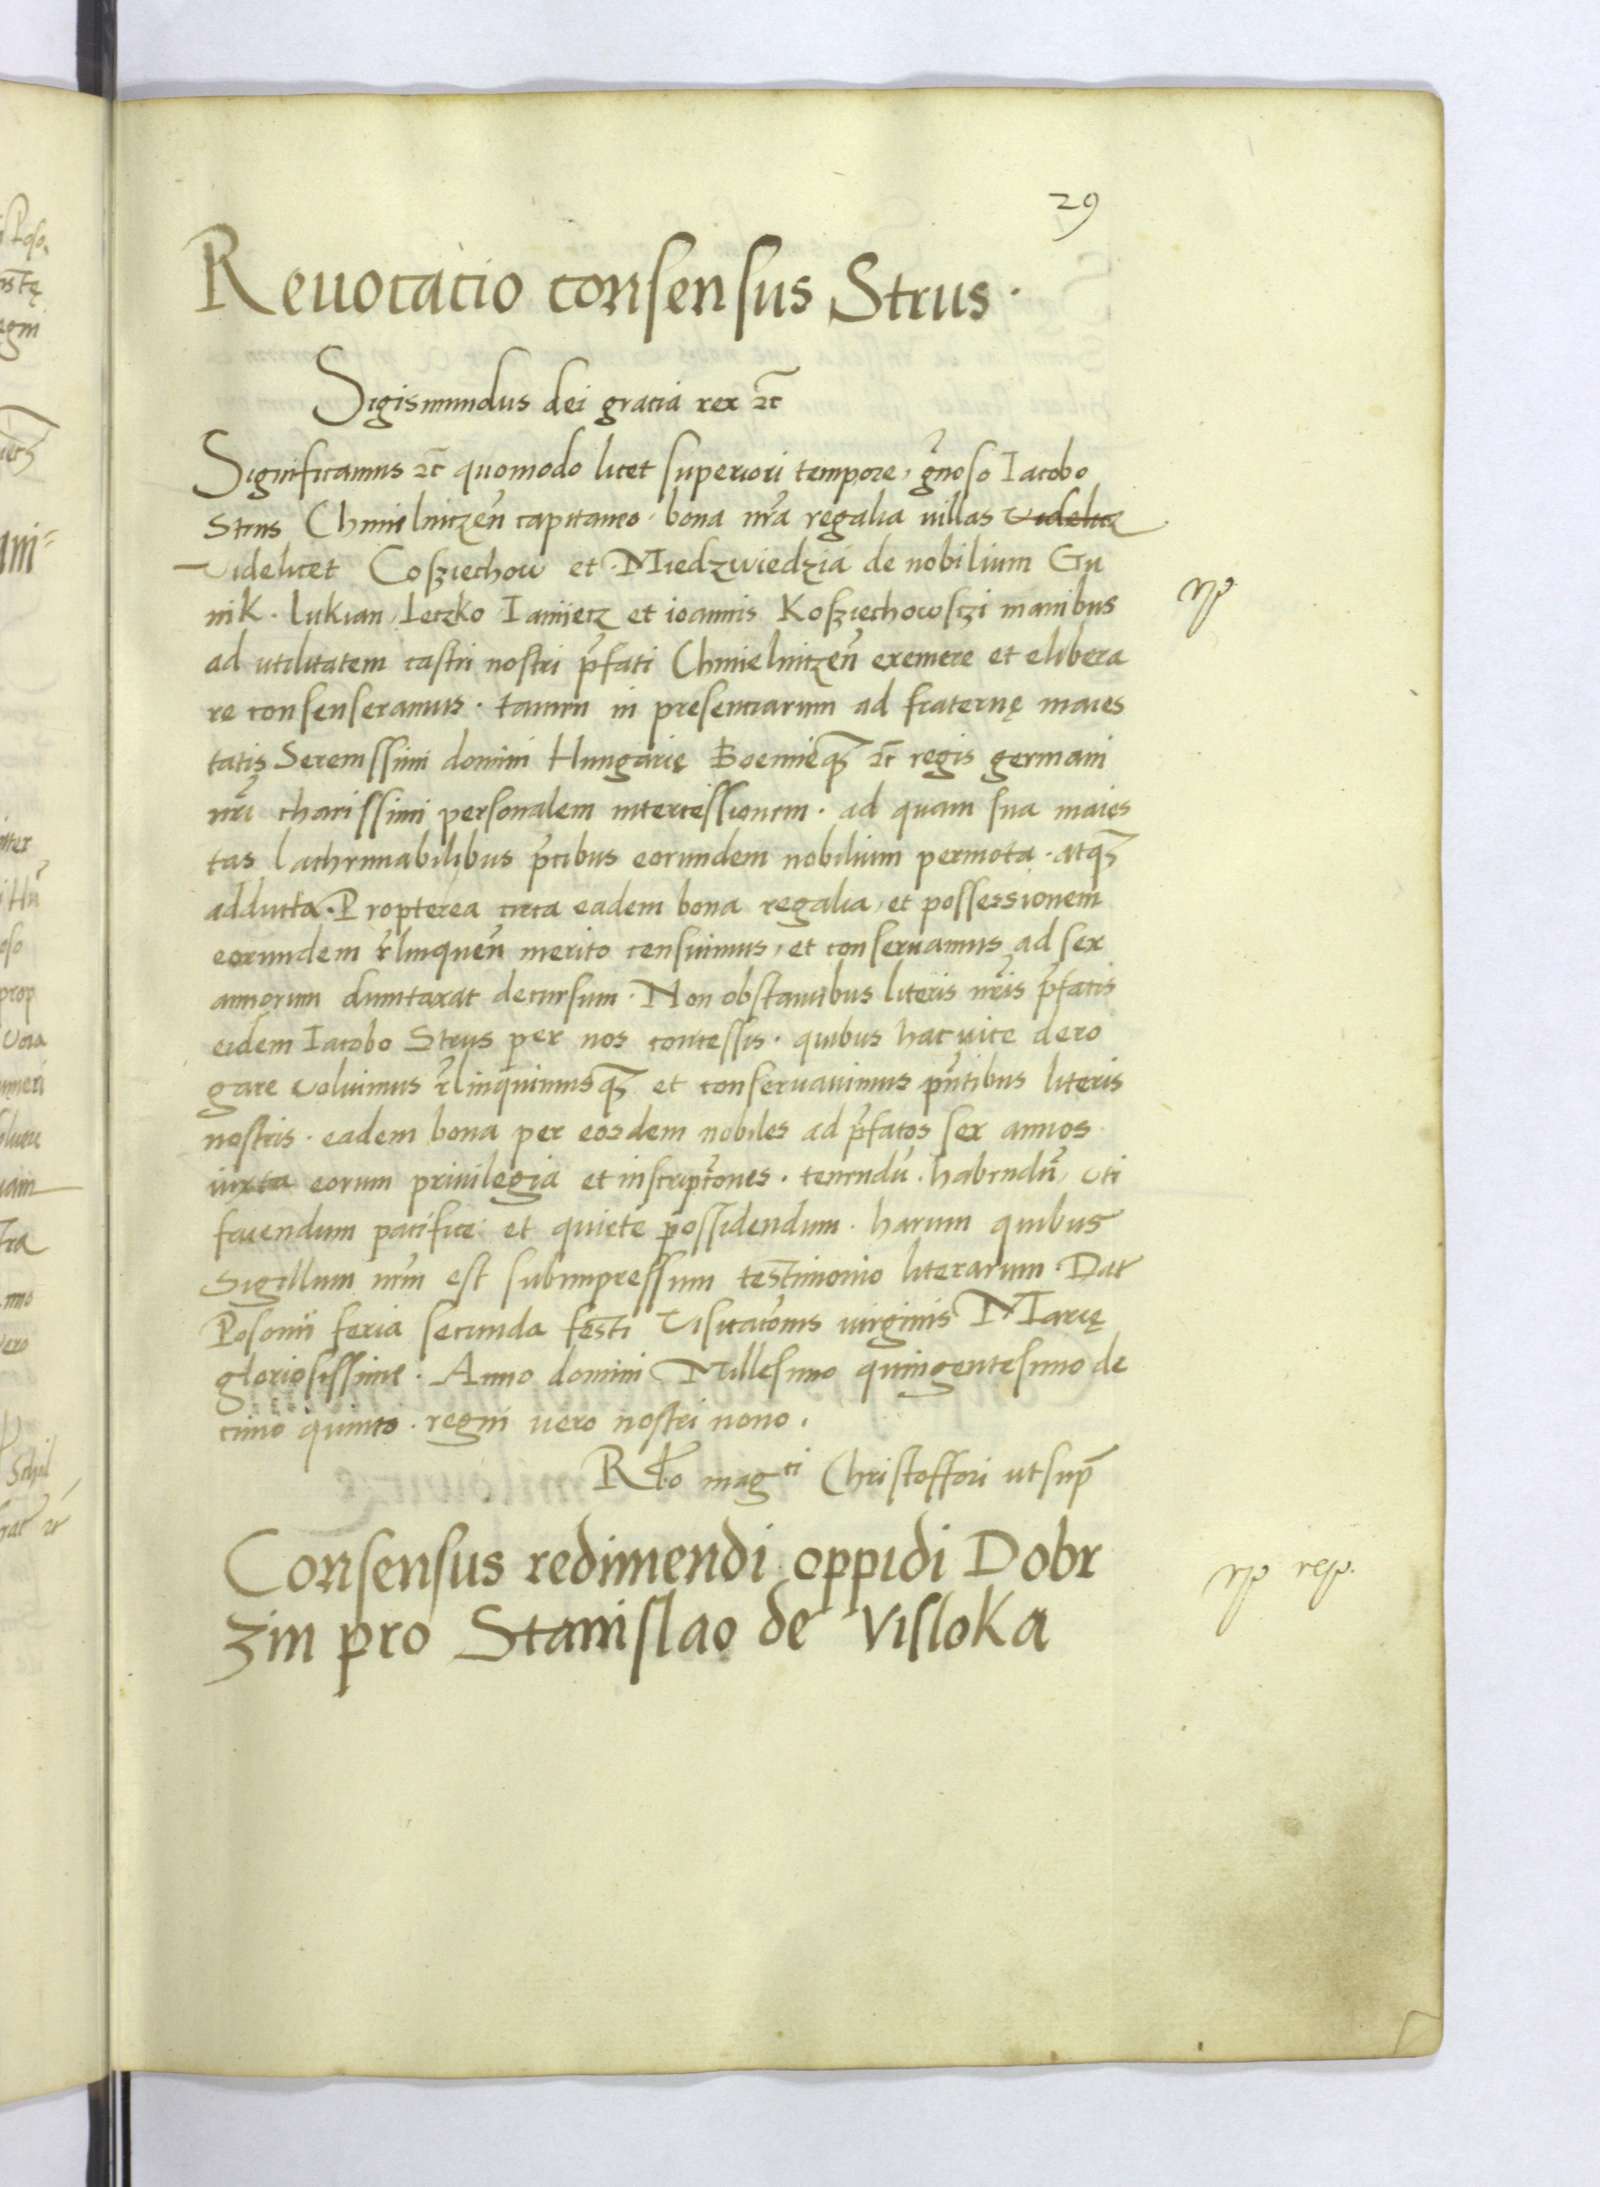 29
Reuocacio consensus Strus.
Sigismundus dei gracia rex ꝛc̄
Significamus ꝛc̄ quomodo licet superiori tempore, gn̄oso Iacobo
Strus Chmielniczen̄ capitaneo. bona nr̄a regalia uillas videlicz
videlicet Coszıechow et Miedzwiedzia de nobilium Gu
nik. lukian Leczko Ianiiecz et ioannis Kosziechowsczi manibus
ad utilitatem castri nostri p̄fati Chmielniczen̄ eximere et elibera
re consenseramus. tamen in presenciarum ad fraternę maies
tatis Serenissimi domini Hungarię Boemieqꝫ ꝛc̄ regis germani
nr̄i charissimi personalem intercessionem. ad quam sua maies
tas lachrimabilibus p̄cibus eorundem nobilium permota. atqꝫ
adducta. Propterea circa eadem bona regalia, et possessionem
eorundem r̄linquen̄ merito censuimus, et conseruamus ad sex
annorum dumtaxat decursum. Non obstantibus literis nr̄is p̄fatis
eidem Iacobo Strus per nos concessis. quibus hac uice dero
gare voluimus r̄linquimusqꝫ et conseruauimus pn̄tibus literis
nostris. eadem bona per eosdem nobiles ad p̄fatos sex annos
iuxta eorum priuilegia et inscripc̄ones. tenendū. habendū, vti
fruendum pacifice et quiete possidendum. harum quibus
Sigillum nr̄m est subimpressum testimonio literarum. Dat
Posonii feria secunda festi Visitac̄onis uirginis Marię
gloriosissime. Anno domini Millesimo quingentesimo de
cimo quinto. regni uero nostri nono.
Rł̄o mag ci Christoffori ut sup̄
Consensus redimendi oppidi Dobr
zin pro Stanislao de Visloka